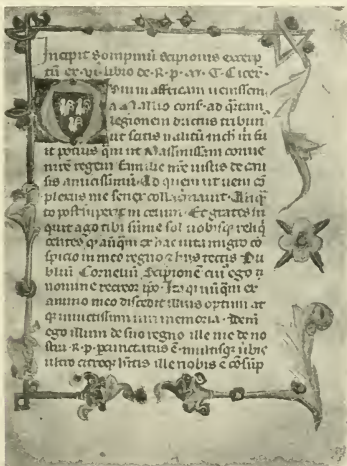 Incipit Sompniũ Scipionis excerp
tũ ex vi libro de R. p. M. T. Cicer.
in affricam uenissem
A Mãlio conf. ad q̃rtam
legionem tribun
ut scitis militũ michi fu
it potius q̃m ut Massinissam conue
nirẽ regem familie nr̃e iustis de cau
sis amicissimũ. Ad quem ut ueni cõ
plexus me senex collacrimauit. 
to post in celum. Et grates in
quit ago tibi sũme sol uobisq; reliq
q̃ anteq̃m ex hac uita migro cõ
spicio in meo regno et hiis tectis Pu
bliũ Corneliũ Scipionẽ cui ego 
nomine recreor ipo. Ita q; nũq̃m ex
animo meo discedit illius optimi at
q; inuictissimi uiri memoria. Deinde
ego illum de suo regno ille me de no
stra .R. p. percunctatus ẽ. multisq; ubis
ultro citroq; hĩtis ille nobis ẽ cõsũp